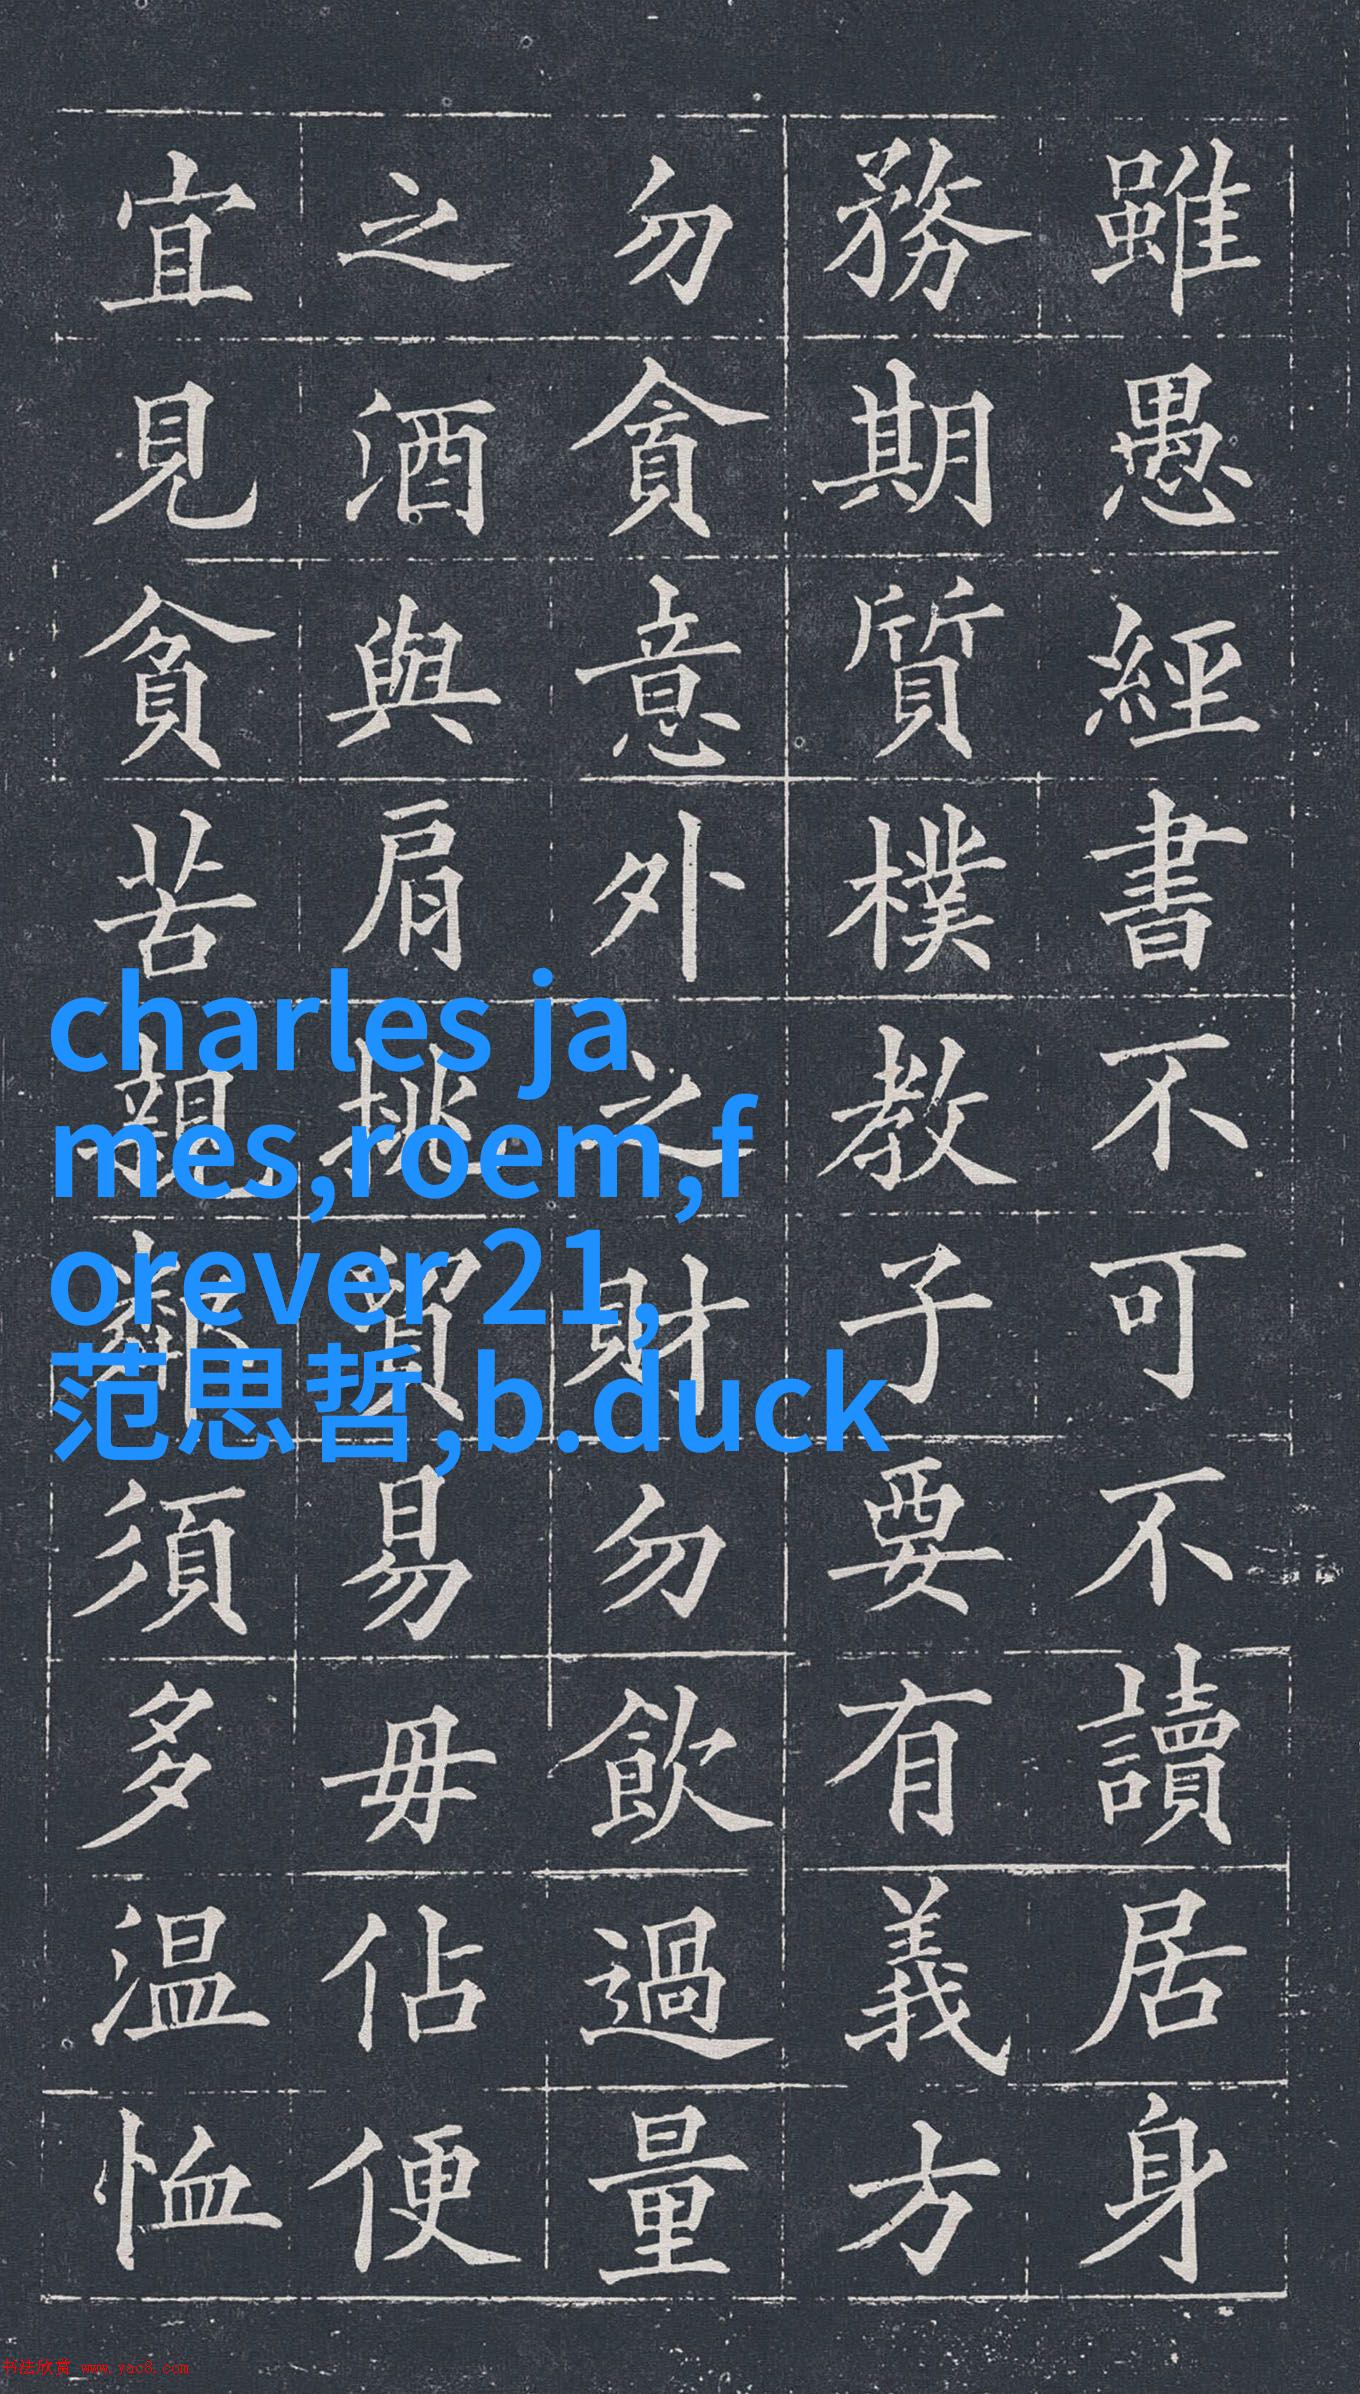 雖愚經書不可不讀居身
務期質樸教子要有義方
勿貪意外之財勿飲過量
之酒與肩挑貿易毋佔便
宜見貧苦親鄰須多溫恤
charles ja
mes,roem,f
orever 21,
范思哲,b.duck
书法欣赏 www.yac8.com